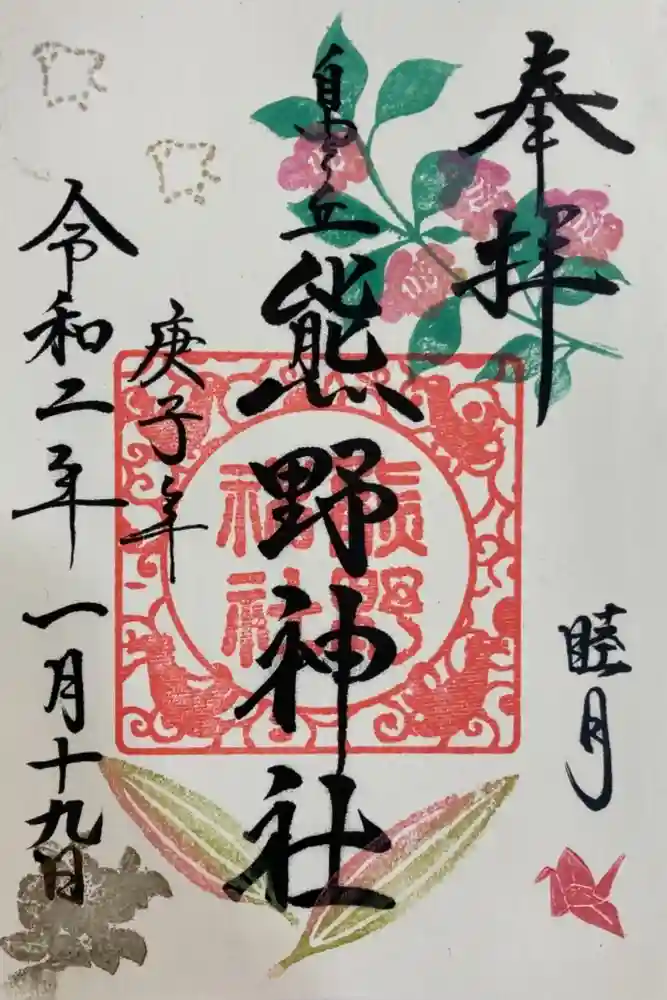 奉拝
睦月
自由ヶ丘
熊野神社
熊野
神社
庚子年
令和二年一月十九日